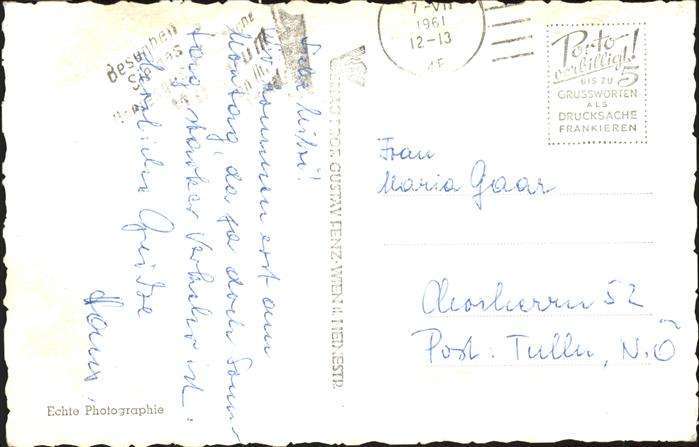 Liebe Mitzi!
Wir kommen erst am
Montag, da ja doch Sonn-
tag starker Verkehr ist.
Herzliche Grüsse
Hans.
7-VII
1961
12-13
Porto
verbilligt!
BIS ZU 5
GRUSSWORTEN
ALS
DRUCKSACHE
FRANKIEREN
Frau
Maria Gaar
Chorherrn 52
Post: Tulln, N.Ö
GUSTAV WIEN
Echte Photographie